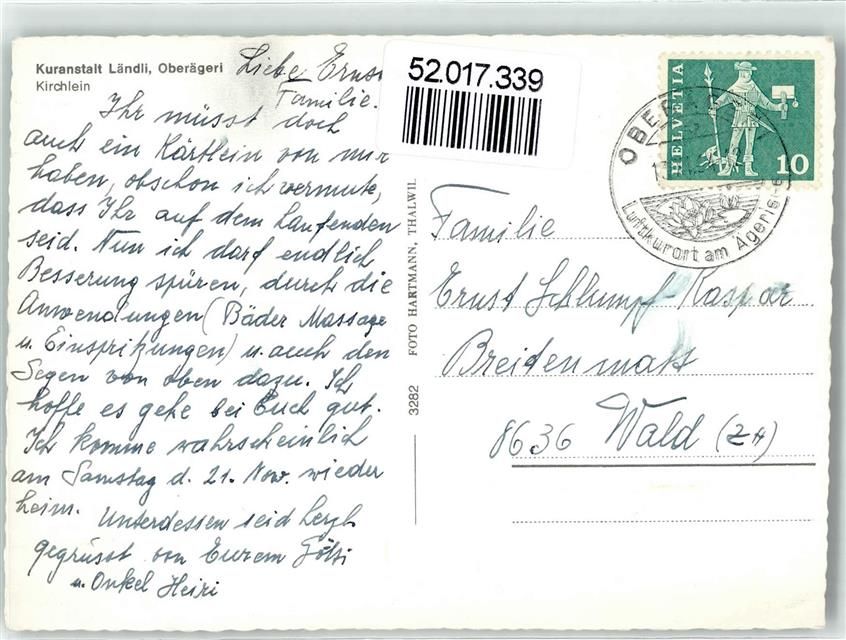 Kuranstalt Ländli, Oberägeri
Kirchlein
Liebe Ernst
Familie.
Ihr müsst doch
auch ein Kärtlein von mir
haben, obschon ich vermute,
dass Ihr auf dem Laufenden
seid. Nun ich darf endlich
Besserung spüren, durch die
Anwendungen (Bäder Massage
u. Einspritzungen) u. auch den
Segen von oben dazu. Ich
hoffe es gehe bei Euch gut.
Ich komme wahrscheinlich
am Samstag d. 21. Nov. wieder
heim. Unterdessen seid herzl.
gegrüsst von Eurem Götti
u. Onkel Heiri
3282 FOTO HARTMANN, THALWIL
52.017.339
HELVETIA
10
Luftkurort am Ägerisee
Familie
Ernst Schlumpf-Kaspar
Breitenmatt
8636 Wald (ZH)